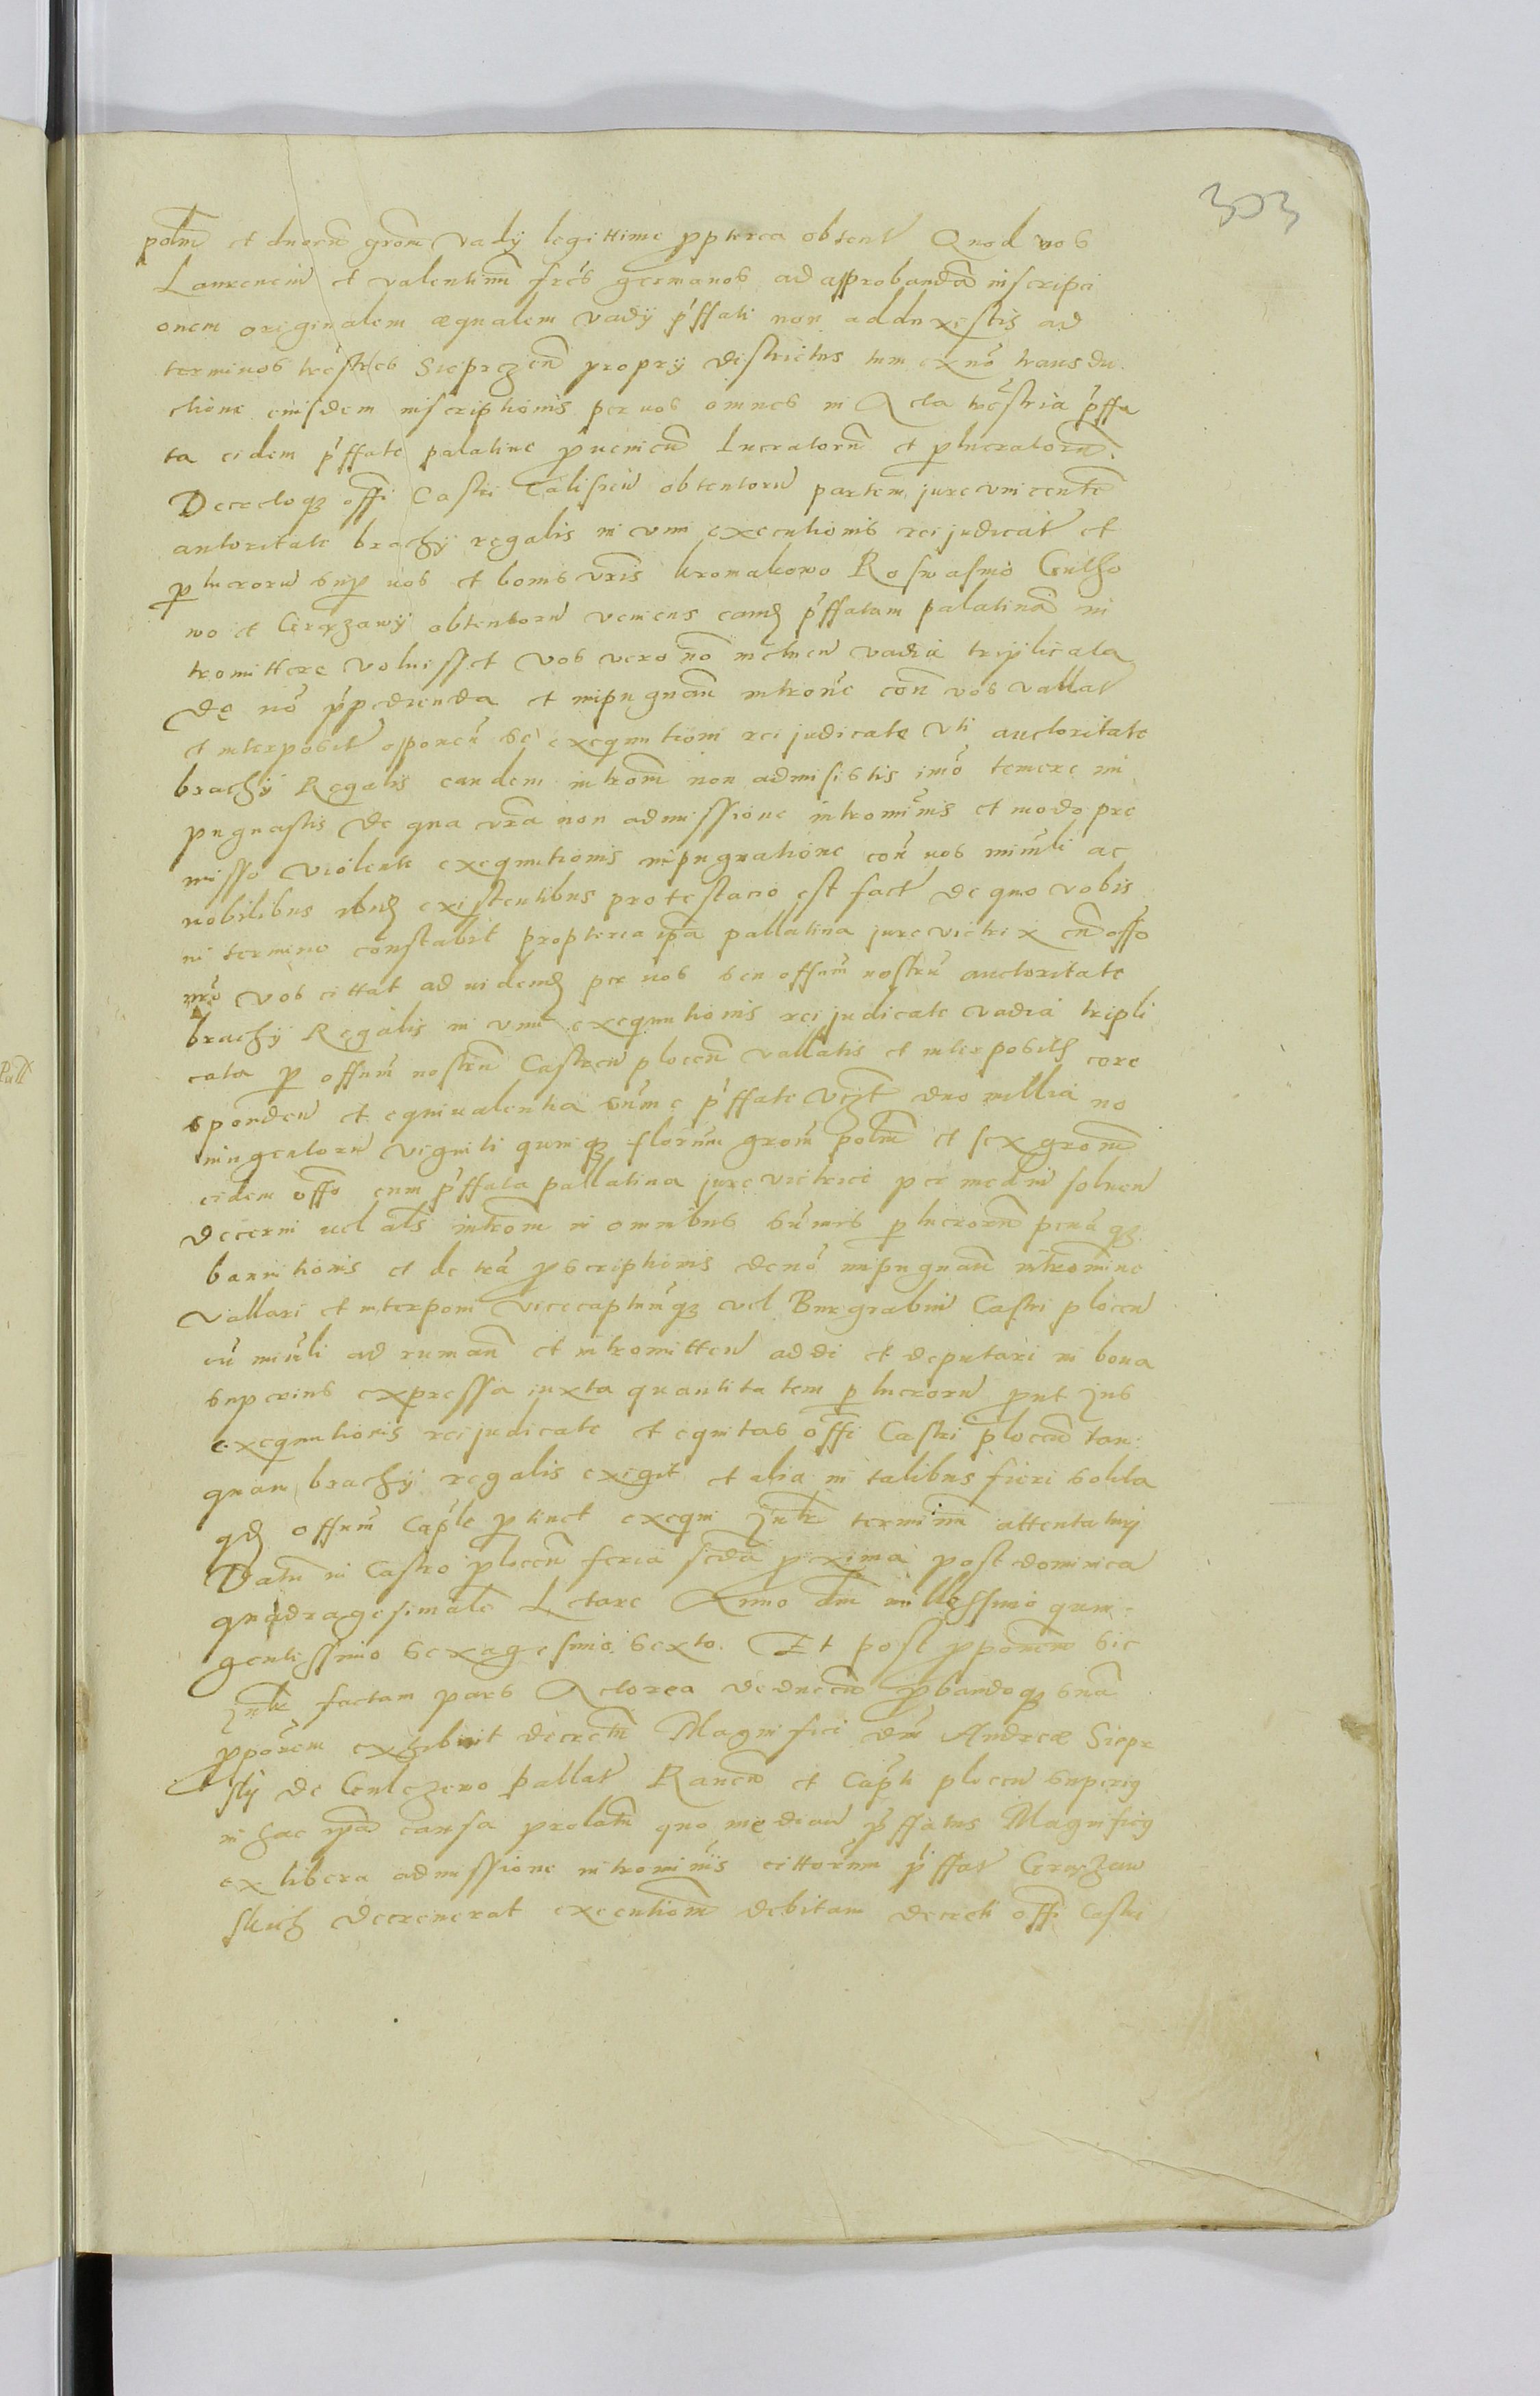 303
polm et duoru grom vadÿ legittime ppterea obtent Quod vos
Laurenciu et valentinu fres germanos ad approbanda inscripci
onem originalem equalem vadÿ pffati non adduxistis ad
terminos trestres Sieprzcen proprÿ districtus tum ex no transdu
ctione eiusdem inscriptionis per vos omnes in Acta trestria pffa
ta eidem pffate palatine pvenien lucratoru et plucratoru
Decretoqz offi Castri obtentoru partem jure vincente
autoritate brachÿ regalis in vim executionis rei judicat et
plucroru sup vos et bonis vris kromakowo Roswasino Gulho
wo et Gerzawÿ obtentoru veniens eamd pffatam palatina in
tromittere voluisset vos vero no metuen vadia triplicata
de no ppedienda et impugnan intronie con vos vallat
et interposit opponen se exequutioni rei judicate vti auctoritate
brachÿ Regalis eandem introm non admisistis imo temere im
pugnastis de qua vra non admissione intromnis et modo pre
misso violente exequutionis impugnatione con vos minli ac
nobilibus ibid existentibus protestacio est fact de quo vobis
in termino constabit propterea ipa pallatina jure victrix cu offo
nro vos cittat ad videnд per vos seu offium nostru auctoritate
brachÿ Regalis in vim exequutionis rei judicate vadia tripli
cata p offium nostru Castren plocen vallatis et interpositis core
sponden et equivalentia sume pffate vzt duo millia no
ningentoru viginti quinqz florenum grom polm et sex grom
eidem offo cum pffata pallatina jure victrice per mediu soluen
decerni vel als introm in omnibus sumis plucroru penaqz
bannitionis et de tra pscriptionis deno impugnan intromine
vallari et interponi vicecaptumqz vel Burgrabiu Castri plocen
cu minli ad ruman et intromitten addi et deputari in bona
superius expressa iuxta quantitatem plucroru put jus
exequutionis rei judicate et equitas offi Castri plocen tan
quam brachÿ regalis exigit et alia in talibus fieri solita
qd offium Caple ptinet exequi Jntr terminu attentaturj
Datum in Castro plocen feria scda pxima post dominica
quadragesimale Letare Anno dni millessimo quin
gentissimo sexagesimo sexto. Et post pponem sic
Jntr factam pars Actorea deducen pbandoqz sua
pponem exhibuit decretu Magnifici dni Andree Siepr
skÿ de Gulczewo pallat Raven et Capti plocen superig
in hac ipa causa prolatu quo median pffatus Magnificg
ex libera admissione intromnis cittorum pffat Gerzaw
skich decreuerat executiom debitam decreti offi Castri